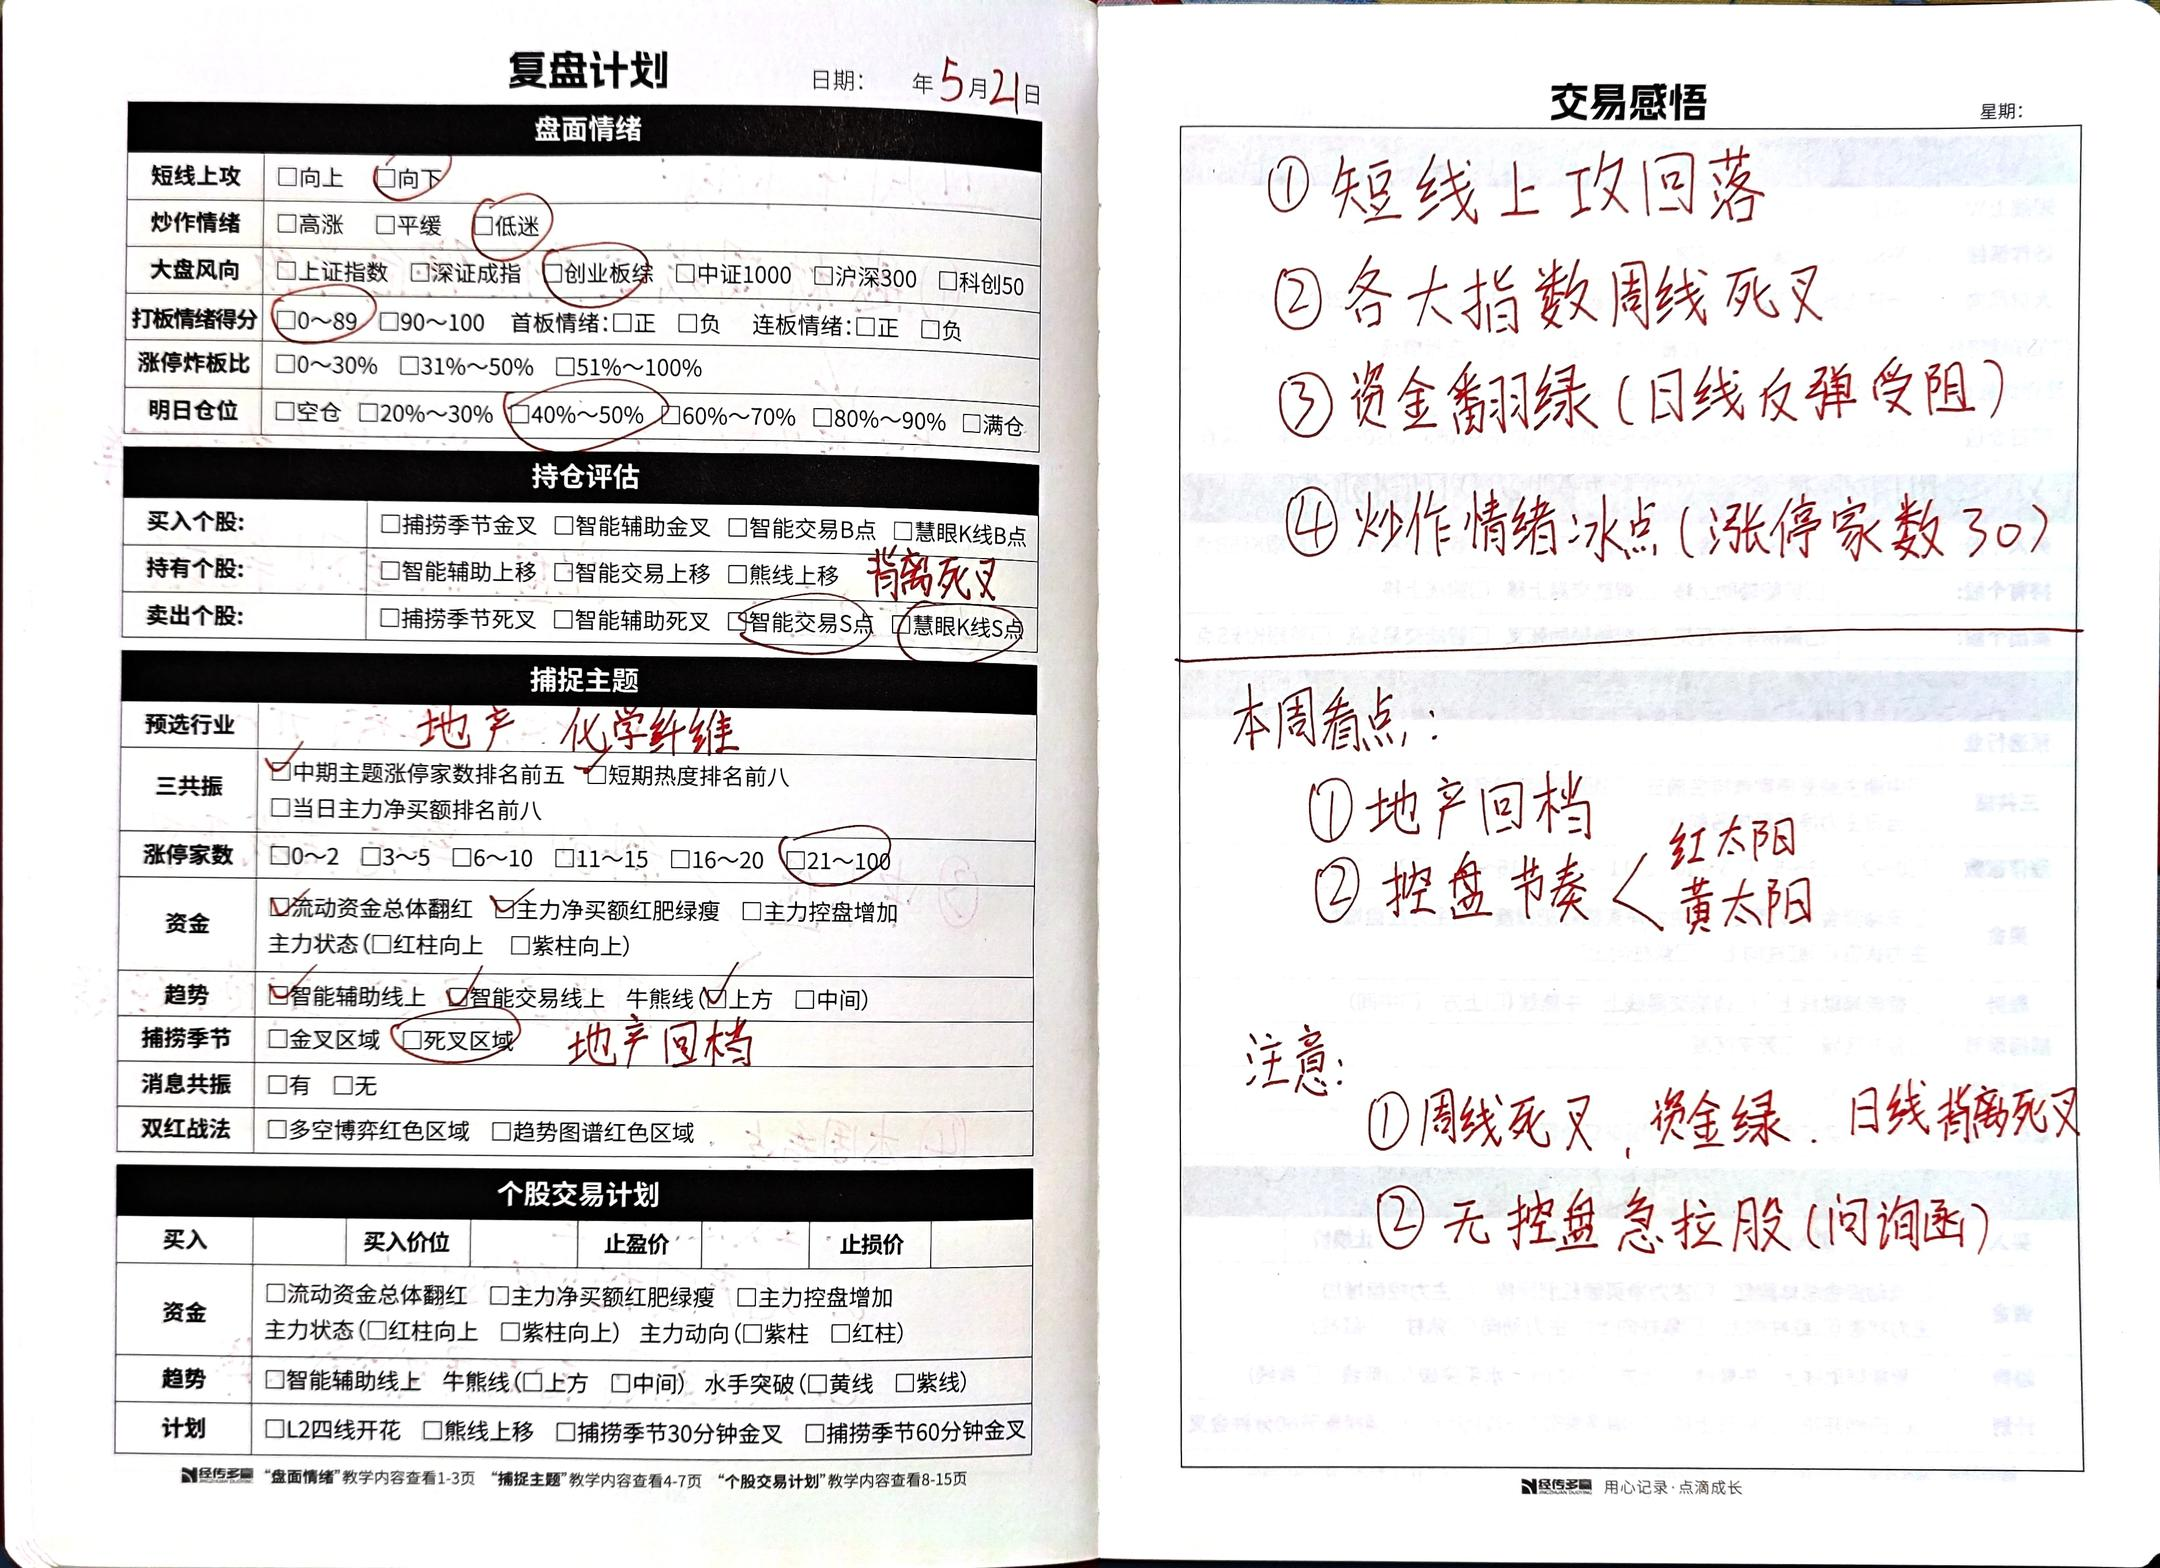 复盘计划
日期： 年5月21日
盘面情绪
短线上攻 □向上 □向下
炒作情绪 □高涨 □平缓 □低迷
大盘风向 □上证指数 □深证成指 □创业板综 □中证1000 □沪深300 □科创50
打板情绪得分 □0～89 □90～100 首板情绪：□正 □负 连板情绪：□正 □负
涨停炸板比 □0～30% □31%～50% □51%～100%
明日仓位 □空仓 □20%～30% □40%～50% □60%～70% □80%～90% □满仓
持仓评估
买入个股： □捕捞季节金叉 □智能辅助金叉 □智能交易B点 □慧眼K线B点
持有个股： □智能辅助上移 □智能交易上移 □熊线上移 背离死叉
卖出个股： □捕捞季节死叉 □智能辅助死叉 □智能交易S点 □慧眼K线S点
捕捉主题
预选行业 地产 化学纤维
三共振 □中期主题涨停家数排名前五 □短期热度排名前八
□当日主力净买额排名前八
涨停家数 □0～2 □3～5 □6～10 □11～15 □16～20 □21～100
资金 □流动资金总体翻红 □主力净买额红肥绿瘦 □主力控盘增加
主力状态(□红柱向上 □紫柱向上)
趋势 □智能辅助线上 □智能交易线上 牛熊线(□上方 □中间)
捕捞季节 □金叉区域 □死叉区域 地产回档
消息共振 □有 □无
双红战法 □多空博弈红色区域 □趋势图谱红色区域
个股交易计划
买入 买入价位 止盈价 止损价
资金 □流动资金总体翻红 □主力净买额红肥绿瘦 □主力控盘增加
主力状态(□红柱向上 □紫柱向上) 主力动向(□紫柱 □红柱)
趋势 □智能辅助线上 牛熊线(□上方 □中间) 水手突破(□黄线 □紫线)
计划 □L2四线开花 □熊线上移 □捕捞季节30分钟金叉 □捕捞季节60分钟金叉
经传多赢 “盘面情绪”教学内容查看1-3页 “捕捉主题”教学内容查看4-7页 “个股交易计划”教学内容查看8-15页
交易感悟
星期：
①短线上攻回落
②各大指数周线死叉
③资金翻绿(日线反弹受阻)
④炒作情绪冰点(涨停家数30)
本周看点：
①地产回档
②控盘节奏＜红太阳
黄太阳
注意：
①周线死叉，资金绿．日线背离死叉
②无控盘急拉股(问询函)
经传多赢 用心记录·点滴成长